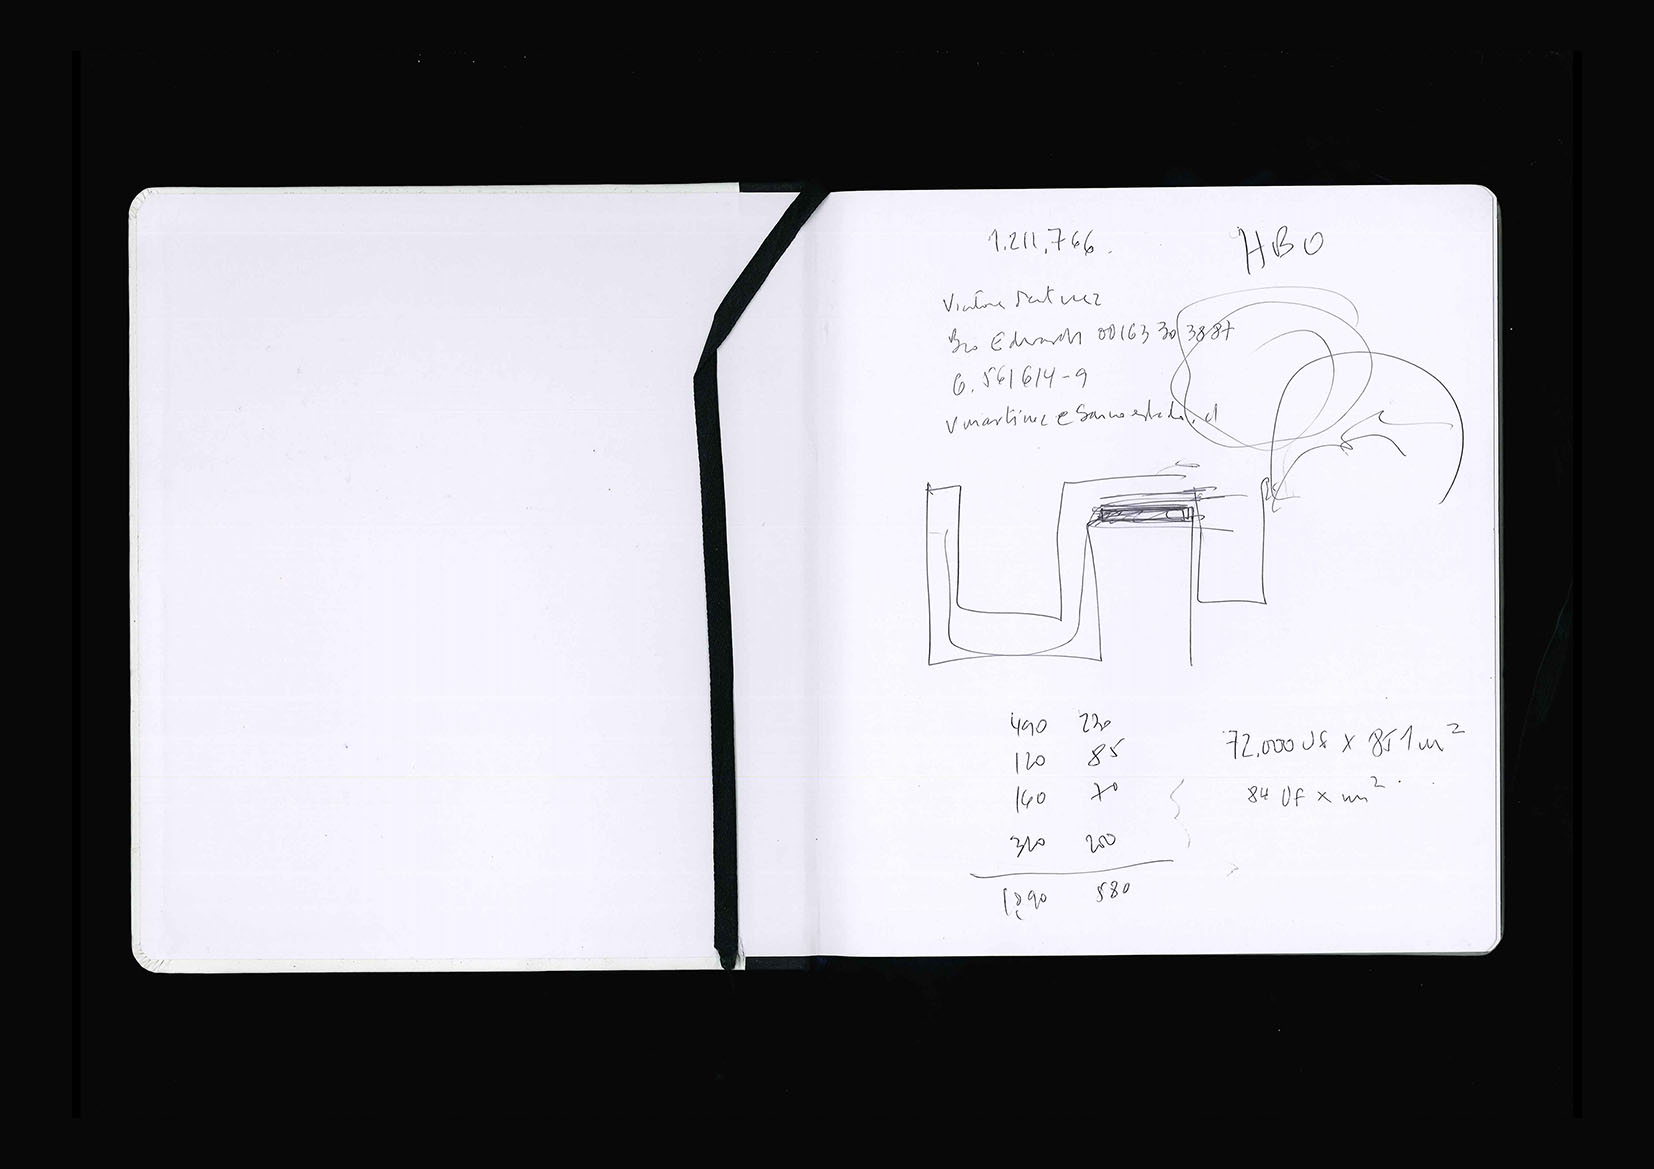 1.211,766.
HBO
Martinez
Bco Edwards 00163 30 3887
6.561614-9
vmartinez@
490 220
120 85
160 70
320 200
1090 580
72.000 Uf x 851 m²
84 Uf x m²